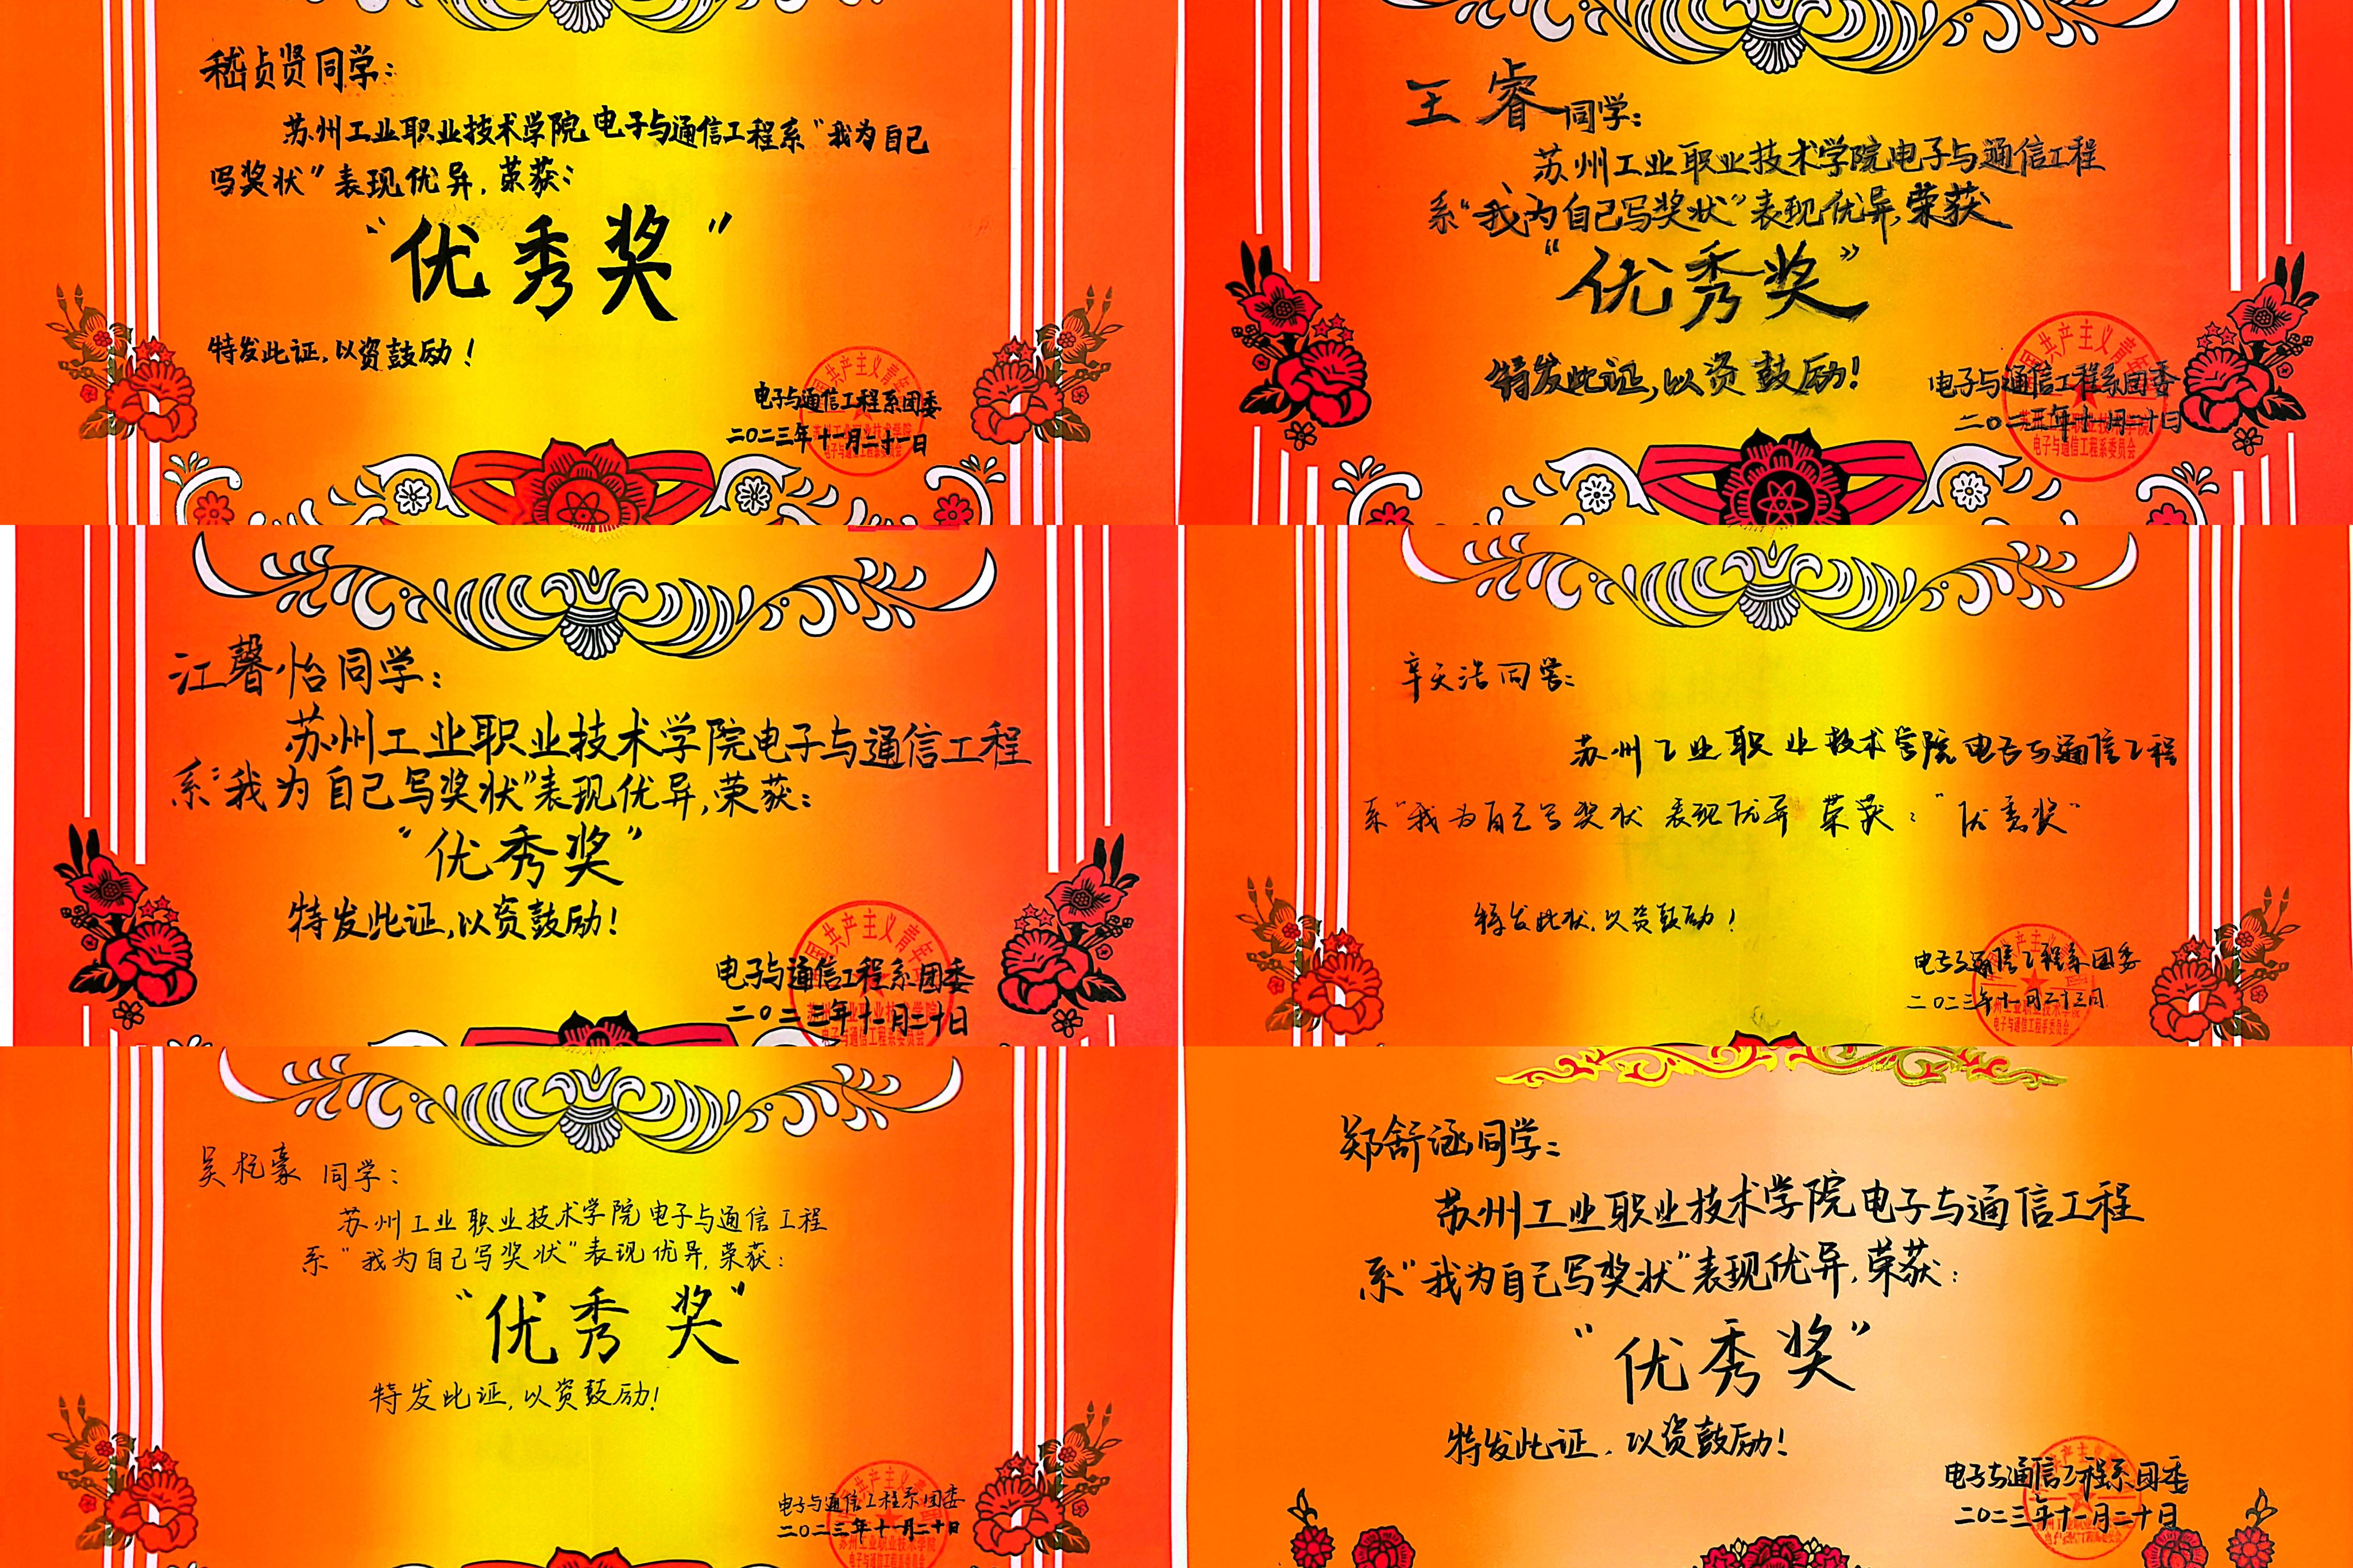 嵇贞贤同学:
苏州工业职业技术学院电子与通信工程系“我为自己
写奖状”表现优异,荣获:
“优秀奖”
特发此证,以资鼓励!
电子与通信工程系团委
二〇二三年十一月二十一日
王睿同学:
苏州工业职业技术学院电子与通信工程
系“我为自己写奖状”表现优异,荣获
“优秀奖”
特发此证,以资鼓励!
电子与通信工程系团委
二〇二三年十一月二十日
电子与通信工程系委员会
江馨怡同学:
苏州工业职业技术学院电子与通信工程
系“我为自己写奖状”表现优异,荣获:
“优秀奖”
特发此证,以资鼓励!
电子与通信工程系团委
二〇二三年十一月二十日
辛天浩同学:
苏州工业职业技术学院电子与通信工程
系“我为自己写奖状 表现优异 荣获:“优秀奖”
特发此状,以资鼓励!
电子与通信工程系团委
二〇二三年十一月二十三日
吴杺豪同学:
苏州工业职业技术学院电子与通信工程
系“我为自己写奖状”表现优异,荣获:
“优秀奖”
特发此证,以资鼓励!
电子与通信工程系团委
二〇二三年十一月二十日
郑舒涵同学:
苏州工业职业技术学院电子与通信工程
系“我为自己写奖状”表现优异,荣获:
“优秀奖”
特发此证,以资鼓励!
电子与通信工程系团委
二〇二三年十一月二十日